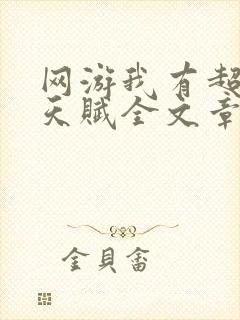 网游我有超
天赋全文章
金貝畲